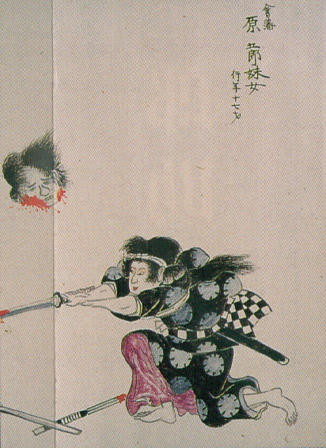 會藩
原 節妹女
行年十七才